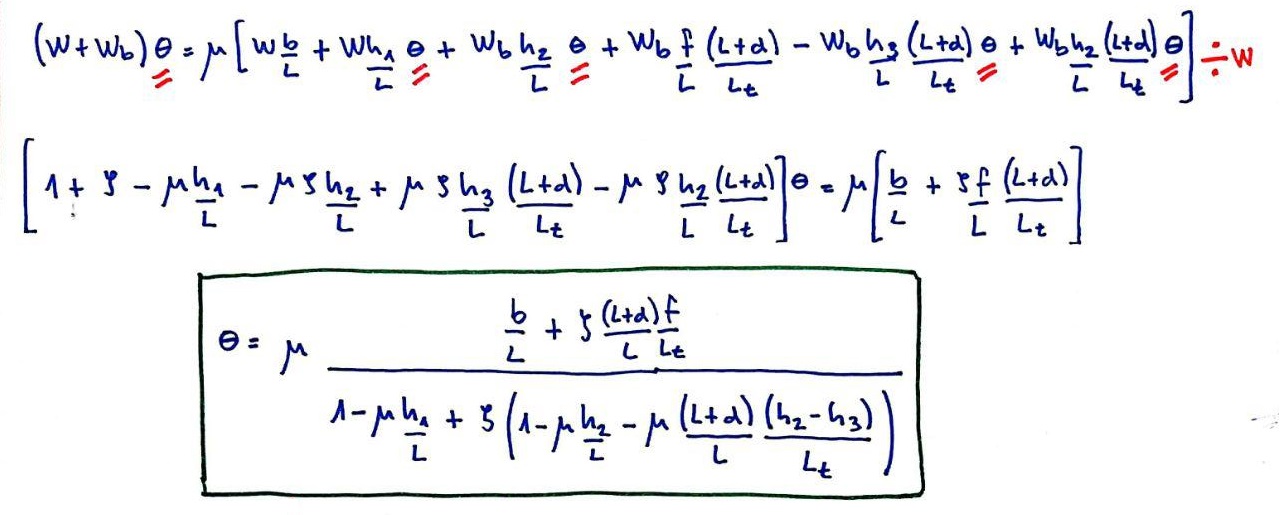 (W+Wb)θ = μ[W b/L + W h₁/L θ + Wb h₂/L θ + Wb f/L (L+d)/Lt − Wb h₃/L (L+d)/Lt θ + Wb h₂/L (L+d)/Lt θ] ÷W
[1 + ζ − μ h₁/L − μ ζ h₂/L + μ ζ h₃/L (L+d)/Lt − μ ζ h₂/L (L+d)/Lt] θ = μ[b/L + ζ f/L (L+d)/Lt]
θ = μ (b/L + ζ (L+d)/L f/Lt) / (1 − μ h₁/L + ζ(1 − μ h₂/L − μ (L+d)/L (h₂−h₃)/Lt))